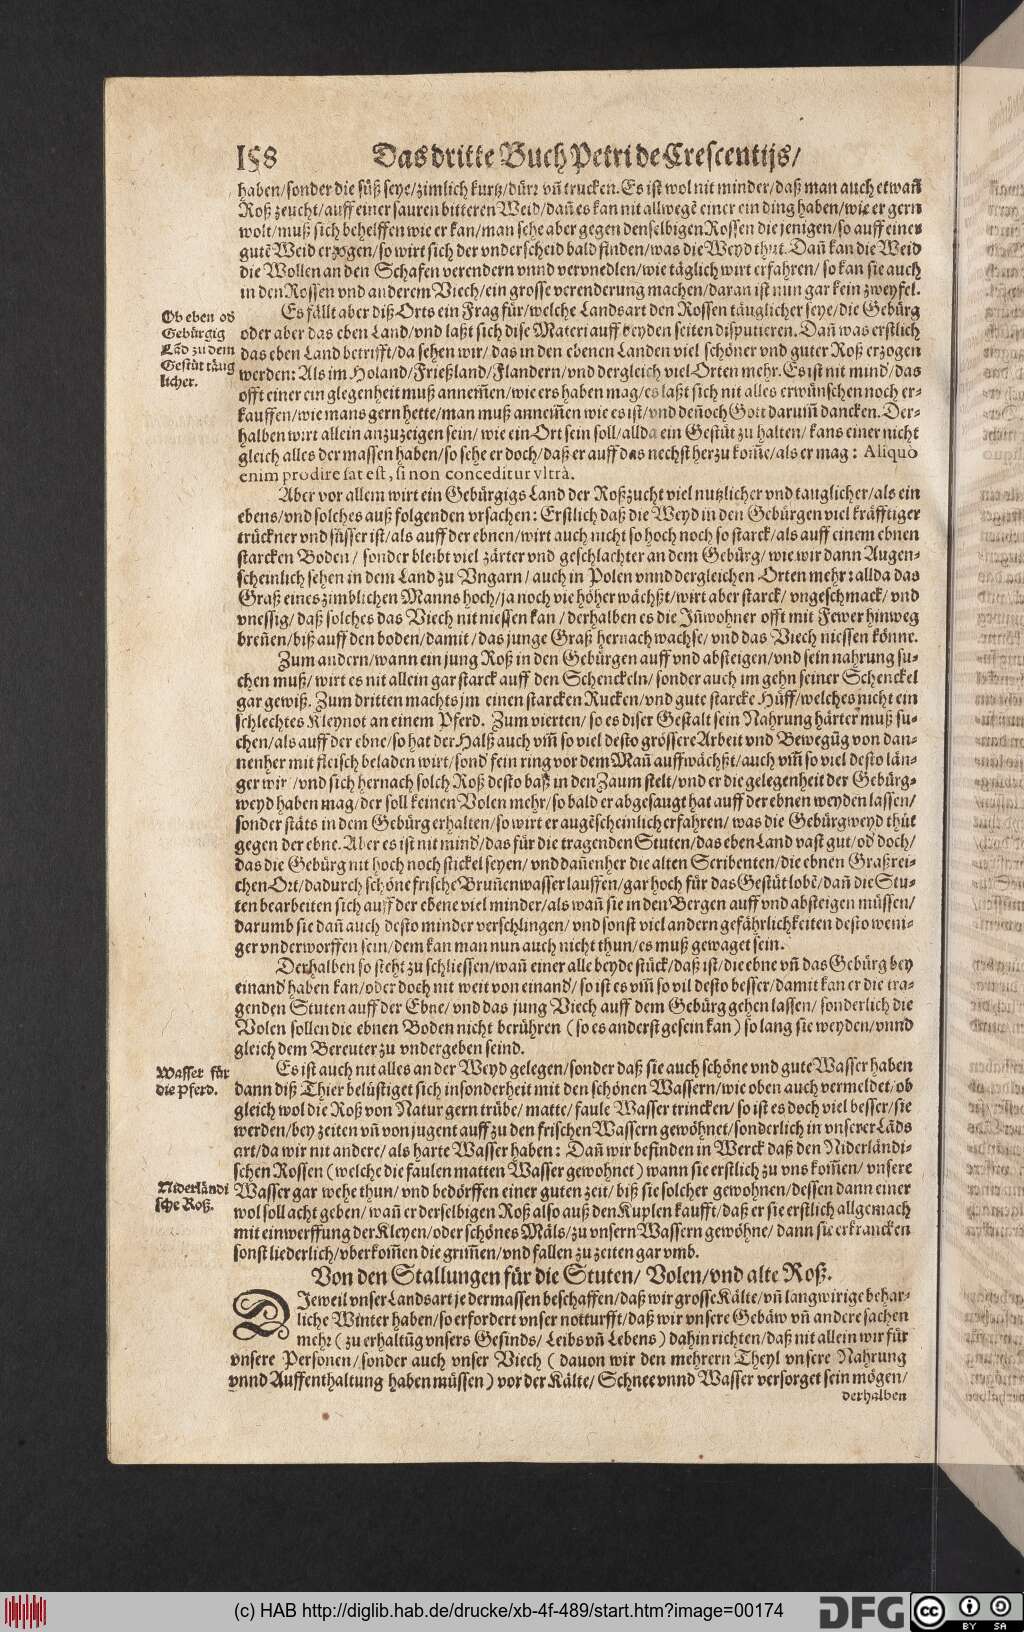 158 Das dritte Buch Petri de Crescentijs/
haben/sonder die süß seye/zimlich kurtz/dürr vñ trucken. Es ist wol nit minder/daß man auch etwañ
Roß zeucht/auff einer sauren bitteren Weid/dañ es kan nit allwegẽ einer ein ding haben/wie er gern
wolt/muß sich behelffen wie er kan/man sehe aber gegen denselbigen Rossen die jenigen/so auff einer
gutẽ Weid erzogen/so wirt sich der vnderscheid bald finden/was die Weyd thut. Dañ kan die Weid
die Wollen an den Schafen verendern vnnd vervnedlen/wie täglich wirt erfahren/ so kan sie auch
in den Rossen vnd anderem Viech/ein grosse verenderung machen/daran ist nun gar kein zweyfel.
Ob eben od
Gebürgig
Lãd zu dem
Gestüt täug
licher.
Es fällt aber diß Orts ein Frag für/welche Landsart den Rossen täuglicher seye/die Gebürg
oder aber das eben Land/vnd laßt sich dise Materi auff beyden seiten disputieren. Dañ was erstlich
das eben Land betrifft/da sehen wir/ das in den ebenen Landen viel schöner vnd guter Roß erzogen
werden: Als im Holand/Frießland/Flandern/vnd dergleich viel Orten mehr. Es ist nit mind/das
offt einer ein glegenheit muß annem̃en/wie ers haben mag/es laßt sich nit alles erwünschen noch er⸗
kauffen/wie mans gern hette/man muß annem̃en wie es ist/vnd deñoch Gott darum̃ dancken. Der⸗
halben wirt allein anzuzeigen sein/ wie ein Ort sein soll/allda ein Gestüt zu halten/ kans einer nicht
gleich alles der massen haben/so sehe er doch/daß er auff das nechst herzu kom̃e/als er mag: Aliquo
enim prodire sat est, si non conceditur vltrà.
Aber vor allem wirt ein Gebürgigs Land der Roßzucht viel nutzlicher vnd tauglicher/als ein
ebens/vnd solches auß folgenden vrsachen: Erstlich daß die Weyd in den Gebürgen viel kräfftiger
trückner vnd süsser ist/als auff der ebnen/wirt auch nicht so hoch noch so starck/als auff einem ebnen
starcken Boden / sonder bleibt viel zärter vnd geschlachter an dem Gebürg/ wie wir dann Augen⸗
scheinlich sehen in dem Land zu Vngarn/ auch in Polen vnnd dergleichen Orten mehr: allda das
Graß eines zimblichen Manns hoch/ja noch vie höher wächßt/wirt aber starck/ vngeschmack/ vnd
vnessig/ daß solches das Viech nit niessen kan / derhalben es die Jñwohner offt mit Fewer hinweg
breñen/biß auff den boden/damit / das junge Graß hernach wachse/ vnd das Viech niessen könne.
Zum andern/wann ein jung Roß in den Gebürgen auff vnd absteigen/vnd sein nahrung su⸗
chen muß/ wirt es nit allein gar starck auff den Schenckeln/ sonder auch im gehn seiner Schenckel
gar gewiß. Zum dritten machts jm einen starcken Rucken/vnd gute starcke Hüff/welches nicht ein
schlechtes Kleynot an einem Pferd. Zum vierten/ so es diser Gestalt sein Nahrung härter muß su⸗
chen/als auff der ebne/so hat der Halß auch vm̃ so viel desto grössere Arbeit vnd Bewegũg von dan⸗
nenher mit fleisch beladen wirt/sond fein ring vor dem Mañ auffwächßt/auch vm̃ so viel desto län⸗
ger wir /vnd sich hernach solch Roß desto baß in den Zaum stelt/vnd er die gelegenheit der Gebürg⸗
weyd haben mag/der soll keinen Volen mehr/so bald er abgesaugt hat auff der ebnen weyden lassen/
sonder stäts in dem Gebürg erhalten/so wirt er augẽscheinlich erfahren/ was die Gebürgweyd thůt
gegen der ebne. Aber es ist nit mind/das für die tragenden Stuten/das eben Land vast gut/od doch/
das die Gebürg nit hoch noch stickel seyen/ vnd dañenher die alten Scribenten/die ebnen Graßrei⸗
chen Ort/dadurch schöne frische Bruñenwasser lauffen/gar hoch für das Gestüt lobẽ/dañ die Stu⸗
ten bearbeiten sich auff der ebene viel minder/als wañ sie in den Bergen auff vnd absteigen müssen/
darumb sie dañ auch desto minder verschlingen/ vnd sonst viel andern gefährlichkeiten desto weni⸗
ger vnderworffen sein/dem kan man nun auch nicht thun/es muß gewaget sein.
Derhalben so steht zu schliessen/wañ einer alle beyde stück/daß ist/die ebne vñ das Gebürg bey
einand haben kan/oder doch nit weit von einand/ so ist es vm̃ so vil desto besser/damit kan er die tra⸗
genden Stuten auff der Ebne/ vnd das jung Viech auff dem Gebürg gehen lassen/ sonderlich die
Volen sollen die ebnen Boden nicht berühren (so es anderst gesein kan) so lang sie weyden/vnnd
gleich dem Bereuter zu vndergeben seind.
Wasser für
die Pferd.
Es ist auch nit alles an der Weyd gelegen/sonder daß sie auch schöne vnd gute Wasser haben
dann diß Thier belüstiget sich insonderheit mit den schönen Wassern/wie oben auch vermeldet/ob
gleich wol die Roß von Natur gern trübe/ matte/ faule Wasser trincken/ so ist es doch viel besser/sie
werden/bey zeiten vñ von jugent auff zu den frischen Wassern gewöhnet/sonderlich in vnserer Lãds
art/da wir nit andere/als harte Wasser haben: Dañ wir befinden in Werck daß den Niderländi⸗
schen Rossen (welche die faulen matten Wasser gewohnet) wann sie erstlich zu vns kom̃en/ vnsere
Niderländi
sche Roß.
Wasser gar wehe thun/ vnd bedörffen einer guten zeit/ biß sie solcher gewohnen/dessen dann einer
wol soll acht geben/ wañ er derselbigen Roß also auß den Kuplen kaufft/daß er sie erstlich allgemach
mit einwerffung der Kleyen/oder schönes Mäls/zu vnsern Wassern gewöhne/ dann sie erkrancken
sonst liederlich/vberkom̃en die grim̃en/vnd fallen zu zeiten gar vmb.
Von den Stallungen für die Stuten/ Volen/vnd alte Roß.
DJeweil vnser Landsart je dermassen beschaffen/daß wir grosse Kälte/vñ langwirige behar⸗
liche Winter haben/so erfordert vnser notturfft/daß wir vnsere Gebäw vñ andere sachen
mehr (zu erhaltũg vnsers Gesinds/ Leibs vñ Lebens) dahin richten/daß nit allein wir für
vnsere Personen/sonder auch vnser Viech (dauon wir den mehrern Theyl vnsere Nahrung
vnnd Auffenthaltung haben müssen) vor der Kälte/ Schnee vnnd Wasser versorget sein mögen/
derhalben
(c) HAB http://diglib.hab.de/drucke/xb-4f-489/start.htm?image=00174
DFG
cc BY SA